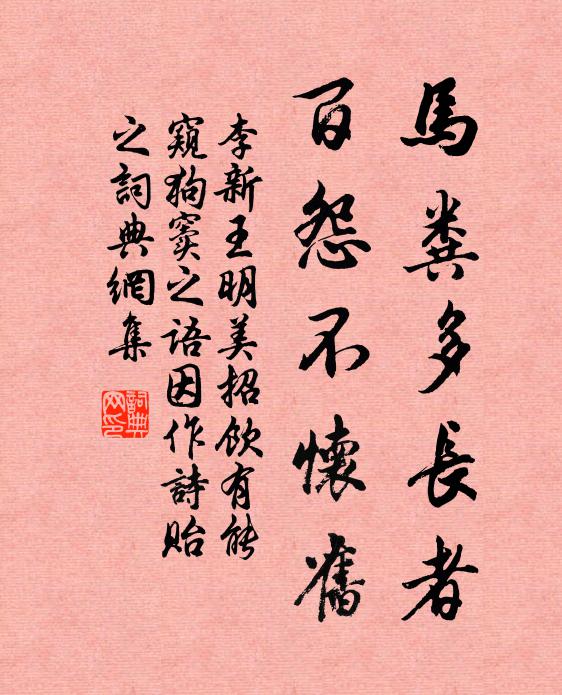 馬粪多長者
百怨不懷舊
李新王明美招飲有能
窺狗窦之語因作詩貽
之詞典網集
詞典
网印